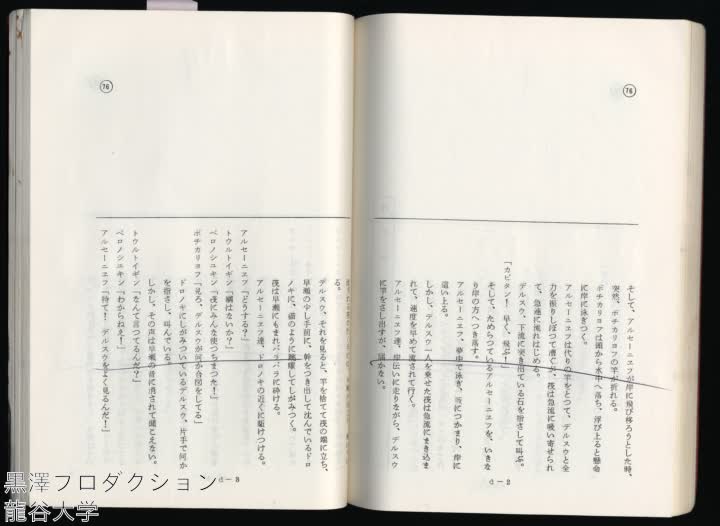 76
そして、アルセーニエフが岸に飛び移ろうとした時、
突然、ポチカリヨフの竿が折れる。
ポチカリヨフは頭から水中へ落ち、浮び上ると懸命
に岸に泳ぎつく。
アルセーニエフは代りの竿をとって、デルスウと全
力を振りしぼって漕ぐが、筏は急流に吸い寄せられ
て、急速に流れはじめる。
デルスウ、下流に突き出ている石を指さして叫ぶ。
「カピタン！ 早く、飛ぶ！」
そして、ためらっているアルセーニエフを、いきな
り岸の方へつき落す。
アルセーニエフ、夢中で泳ぎ、石につかまり、岸に
這い上る。
しかし、デルスウ一人を乗せた筏は急流にまき込ま
れて、速度を早めて流されて行く。
アルセーニエフ達、岸伝いに走りながら、デルスウ
に竿をさし出すが、届かない。
d－2
76
る。
デルスウ、それを見ると、竿を捨てて筏の端に立ち、
早瀬の少し手前に、幹をつき出して沈んでいるドロ
ノキに、猫のように跳躍してしがみつく。
筏は早瀬にもまれバラバラに砕ける。
アルセーニエフ達、ドロノキの近くに駆けつける。
アルセーニエフ「どうする？」
トウルトイギン「綱はないか？」
ベロノシユキン「筏にみんな使っちまった！」
ポチカリヨフ「見ろ、デルスウが何か合図をしてる」
ドロノキにしがみついているデルスウ、片手で何か
を指さし、叫んでいる。
しかし、その声は早瀬の音に消されて聞こえない。
トウルトイギン「なんて言ってるんだ？」
ベロノシユキン「わからねえ！」
アルセーニエフ「待て！ デルスウをよく見るんだ！」
d－3
黒澤プロダクション
龍谷大学